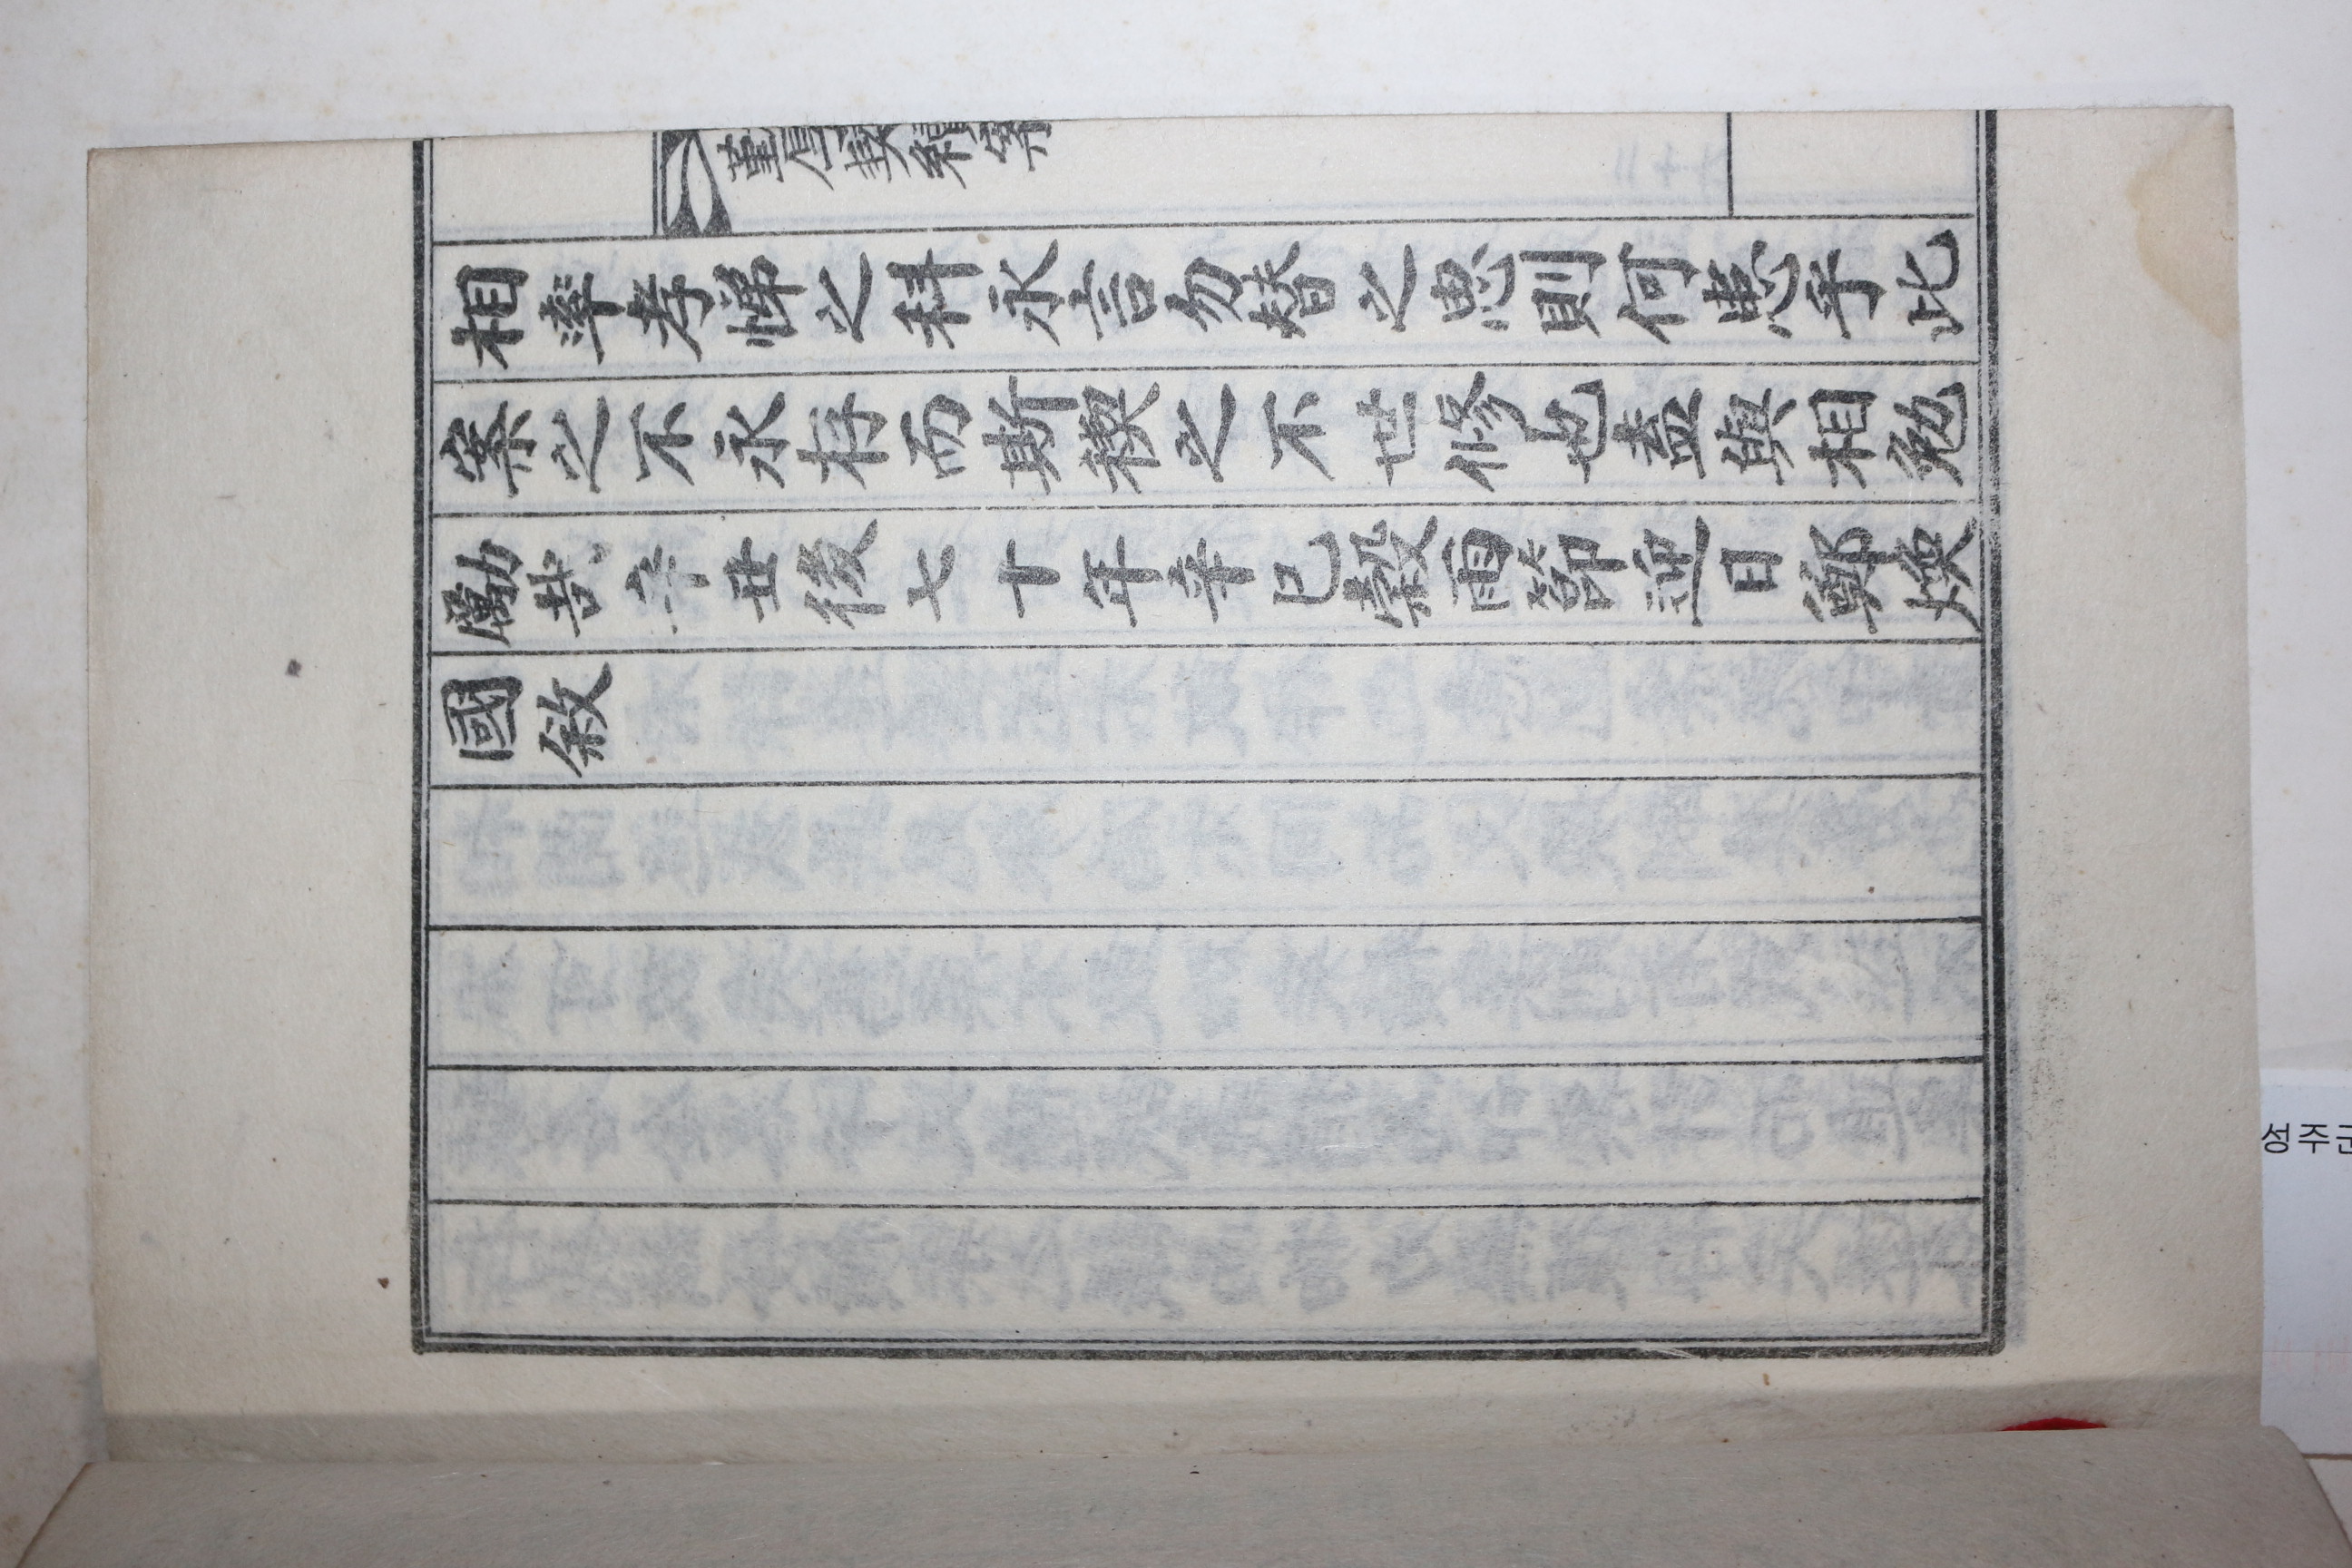 勤厚契續案
相率孝悌之科永言勿替之思則何患乎此
案之不永存而斯稧之不世修也盍與相勉
勵哉辛丑後七十年辛巳穀雨節迎日鄭煥
國敘
성주군